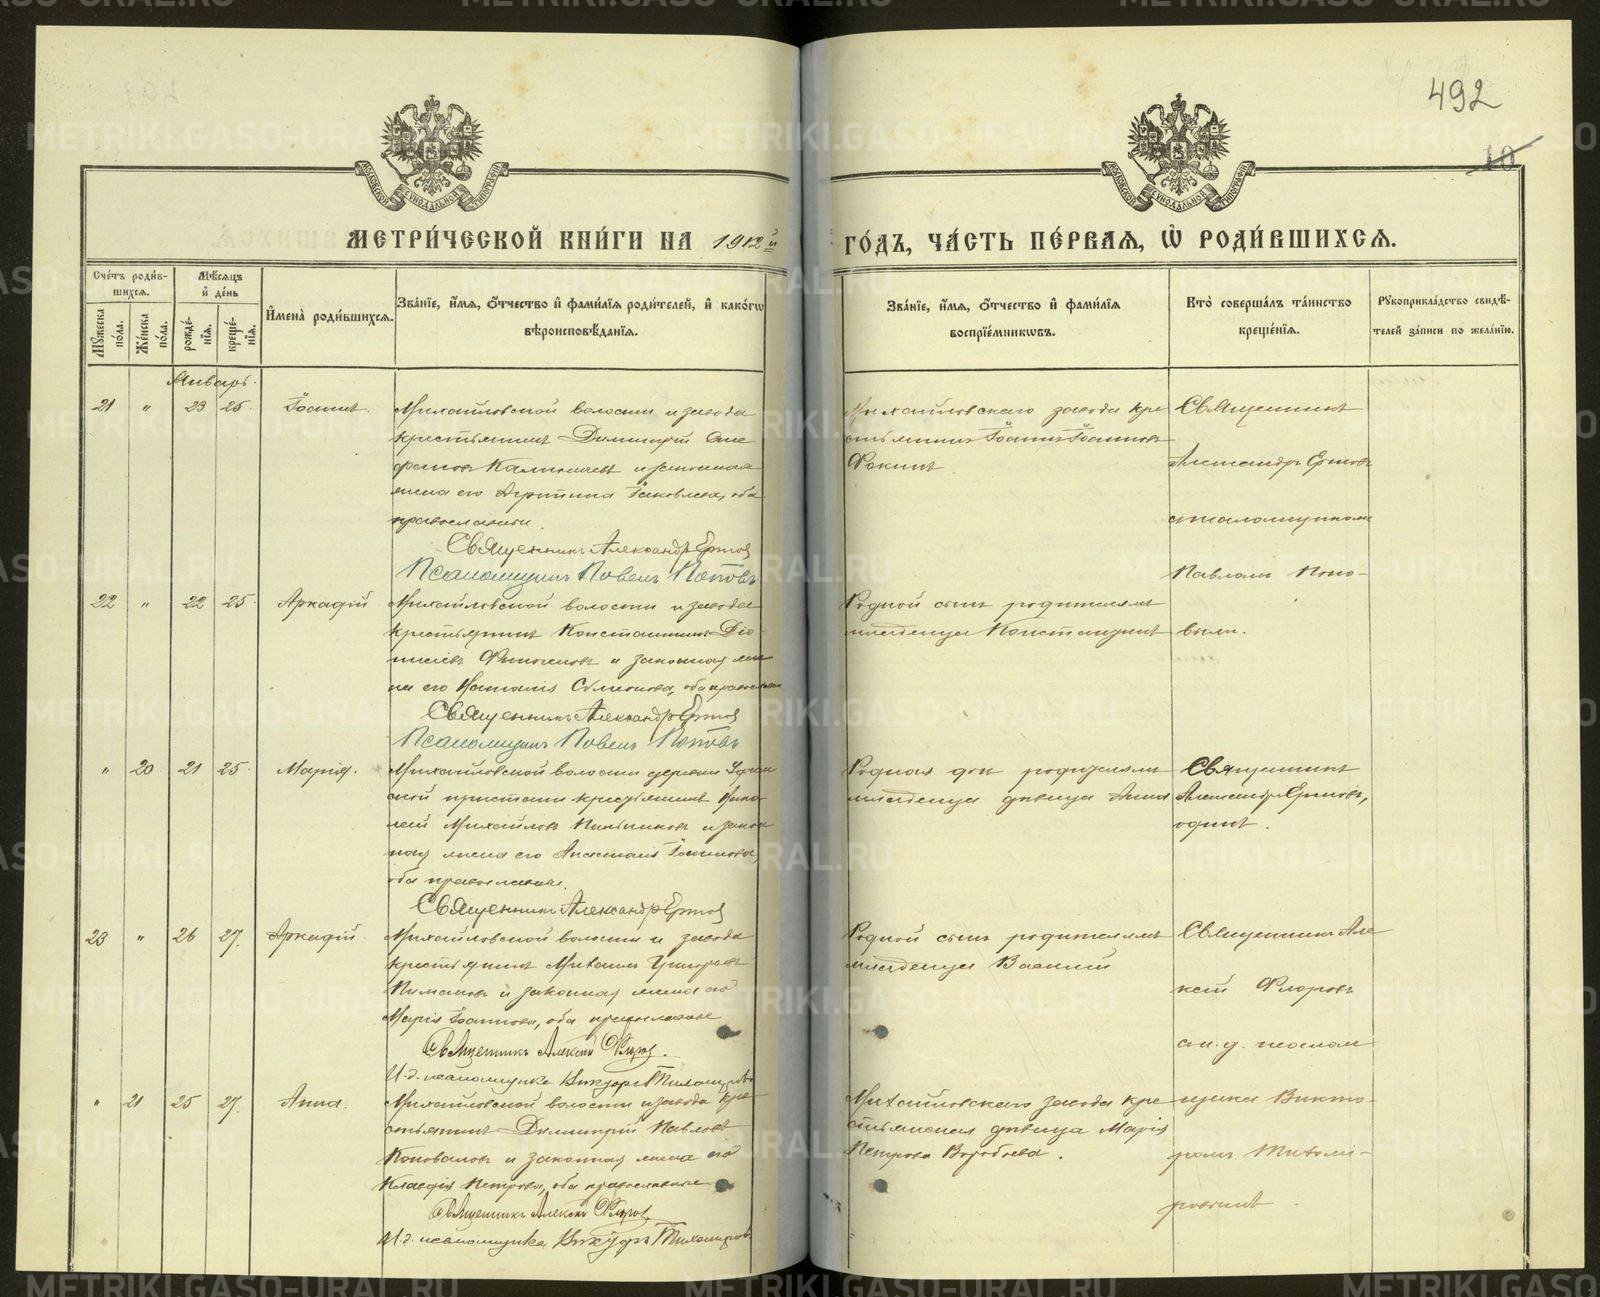 492
10
МОСКОВСКОЙ СѴНОДАЛЬНОЙ ТИПОГРАФІИ
МОСКОВСКОЙ СѴНОДАЛЬНОЙ ТИПОГРАФІИ
МЕТРИ́ЧЕСКОЙ КНИ́ГИ НА 1912й
ГО́ДЪ, ЧА́СТЬ ПЕ́РВАЯ, Ѡ РОДИ́ВШИХСЯ.
Сче́тъ роди́в-
шихся.
Му́жеска по́ла.
Же́нска по́ла.
Мѣ́сяцъ
и де́нь
рожде́-
нія.
креще́-
нія.
Имена̀ роди́вшихся.
Зва́ніе, и́мя, о́тчество и фами́лія роди́телей, и како́гѡ
вѣроисповѣ́данія.
Зва́ніе, и́мя, о́тчество и фами́лія
воспріе́мниковъ.
Кто̀ соверша́лъ та́инство
креще́нія.
Рукоприкла́дство свидѣ́-
телей за́писи по жела́нію.
Январь.
21 " 23 25. Іоаннъ.
Михайловской волости и завода
крестьянинъ Димитрій Сте
фановъ и законная
жена его Агриппина Іаковлева, оба
православные.
Священникъ Александръ Ершов
Псаломщикъ Павелъ Поповъ
Михайловскаго завода кре
стьянинъ Іоаннъ Іоанновъ
Фокинъ.
Священникъ
Александръ Ершовъ
с псаломщикомъ
Павломъ Попо-
вымъ.
22 " 22 25. Аркадій
Михайловской волости и завода
крестьянинъ Константинъ Діо-
нисіевъ и законная же
на его Наталія Симеонова, оба православные
Священникъ Александръ Ершов
Псаломщикъ Павелъ Поповъ
Родной сынъ родителямъ
младенца Константинъ
" 20 21 25. Марія.
Михайловской волости деревни Уфим
ской пристани крестьянинъ Нико
лай Михайловъ и закон
ная жена его Анастасія Іоаннова,
оба православные.
Священникъ Александръ Ершов
Родная дочь родителямъ
младенца дѣвица Анна
Священникъ
Александръ Ершовъ,
одинъ.
23 " 26 27. Аркадій
Михайловской волости и завода
крестьянинъ Михаилъ Григорьевъ
и законная жена его
Марія Іоаннова, оба православные
Священникъ Алексій Флоровъ.
И. д. псаломщика Викторъ Тихомировъ
Родной сынъ родителямъ
младенца Василій
Священникъ Але
ксій Флоровъ
с и. д. псалом
щика Викто-
ромъ Тихоми-
ровымъ.
" 21 25 27. Анна.
Михайловской волости и завода кре
стьянинъ Димитрій Павловъ
Коноваловъ и законная жена его
Клавдія Петрова, оба православные
Священникъ Алексій Флоровъ
И. д. псаломщика Викторъ Тихомировъ
Михайловскаго завода кре
стьянская дѣвица Марія
Петрова Воробьева.
METRIKI.GASO-URAL.RU